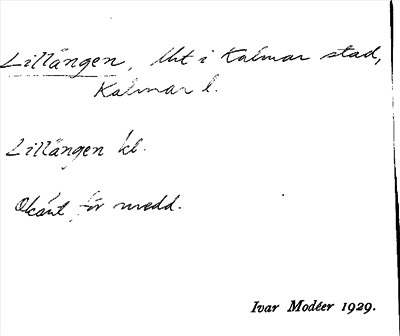 Lillängen, Uht i Kalmar stad,
Kalmar l.
Lillängen kl.
Okänt för medd.
Ivar Modéer 1929.